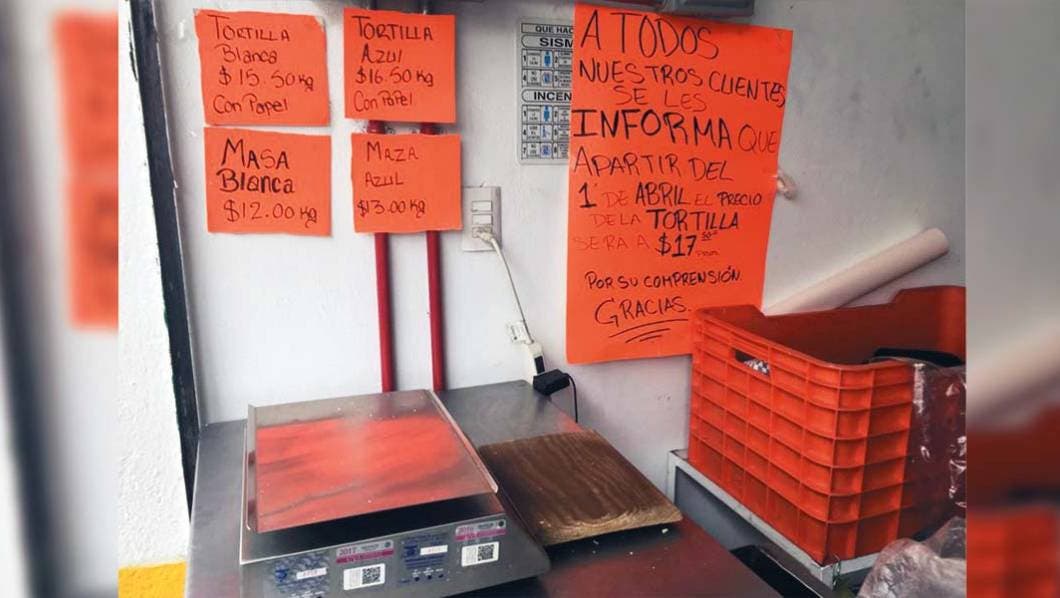 TORTILLA
Blanca
$15.50 Kg
Con Papel
TORTILLA
Azul
$16.50 Kg
Con Papel
MASA
Blanca
$12.00 Kg
MAZA
AZUL
$13.00 Kg
QUE HAC
SISM
INCEN
A TODOS
NUESTROS CLIENTES
SE LES
INFORMA QUE
APARTIR DEL
1° DE ABRIL EL PRECIO
DE LA TORTILLA
SERA A $17
POR SU COMPRENSIÓN
GRACIAS.
2017